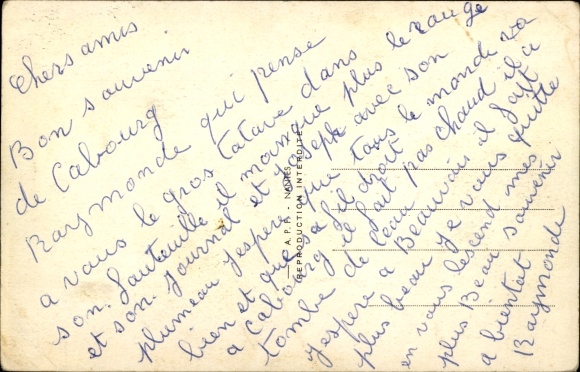 Chers amis
Bon souvenir
de Cabourg
Raymonde qui pense
a vous le gros tatave dans
son fauteuille il manque plus le rouge
et son journal et Joseph avec son
plumeau j'espere que tous le monde va
bien et que sa fil droit
a Cabourg il fait pas chaud il a
tombe de l'eau
j'espere a Beauvais il fait
plus beau je vous quitte
en vous lescend mes
plus Beau souvenir
a bientot
Raymonde
A. P. P. - NANTES
REPRODUCTION INTERDITE